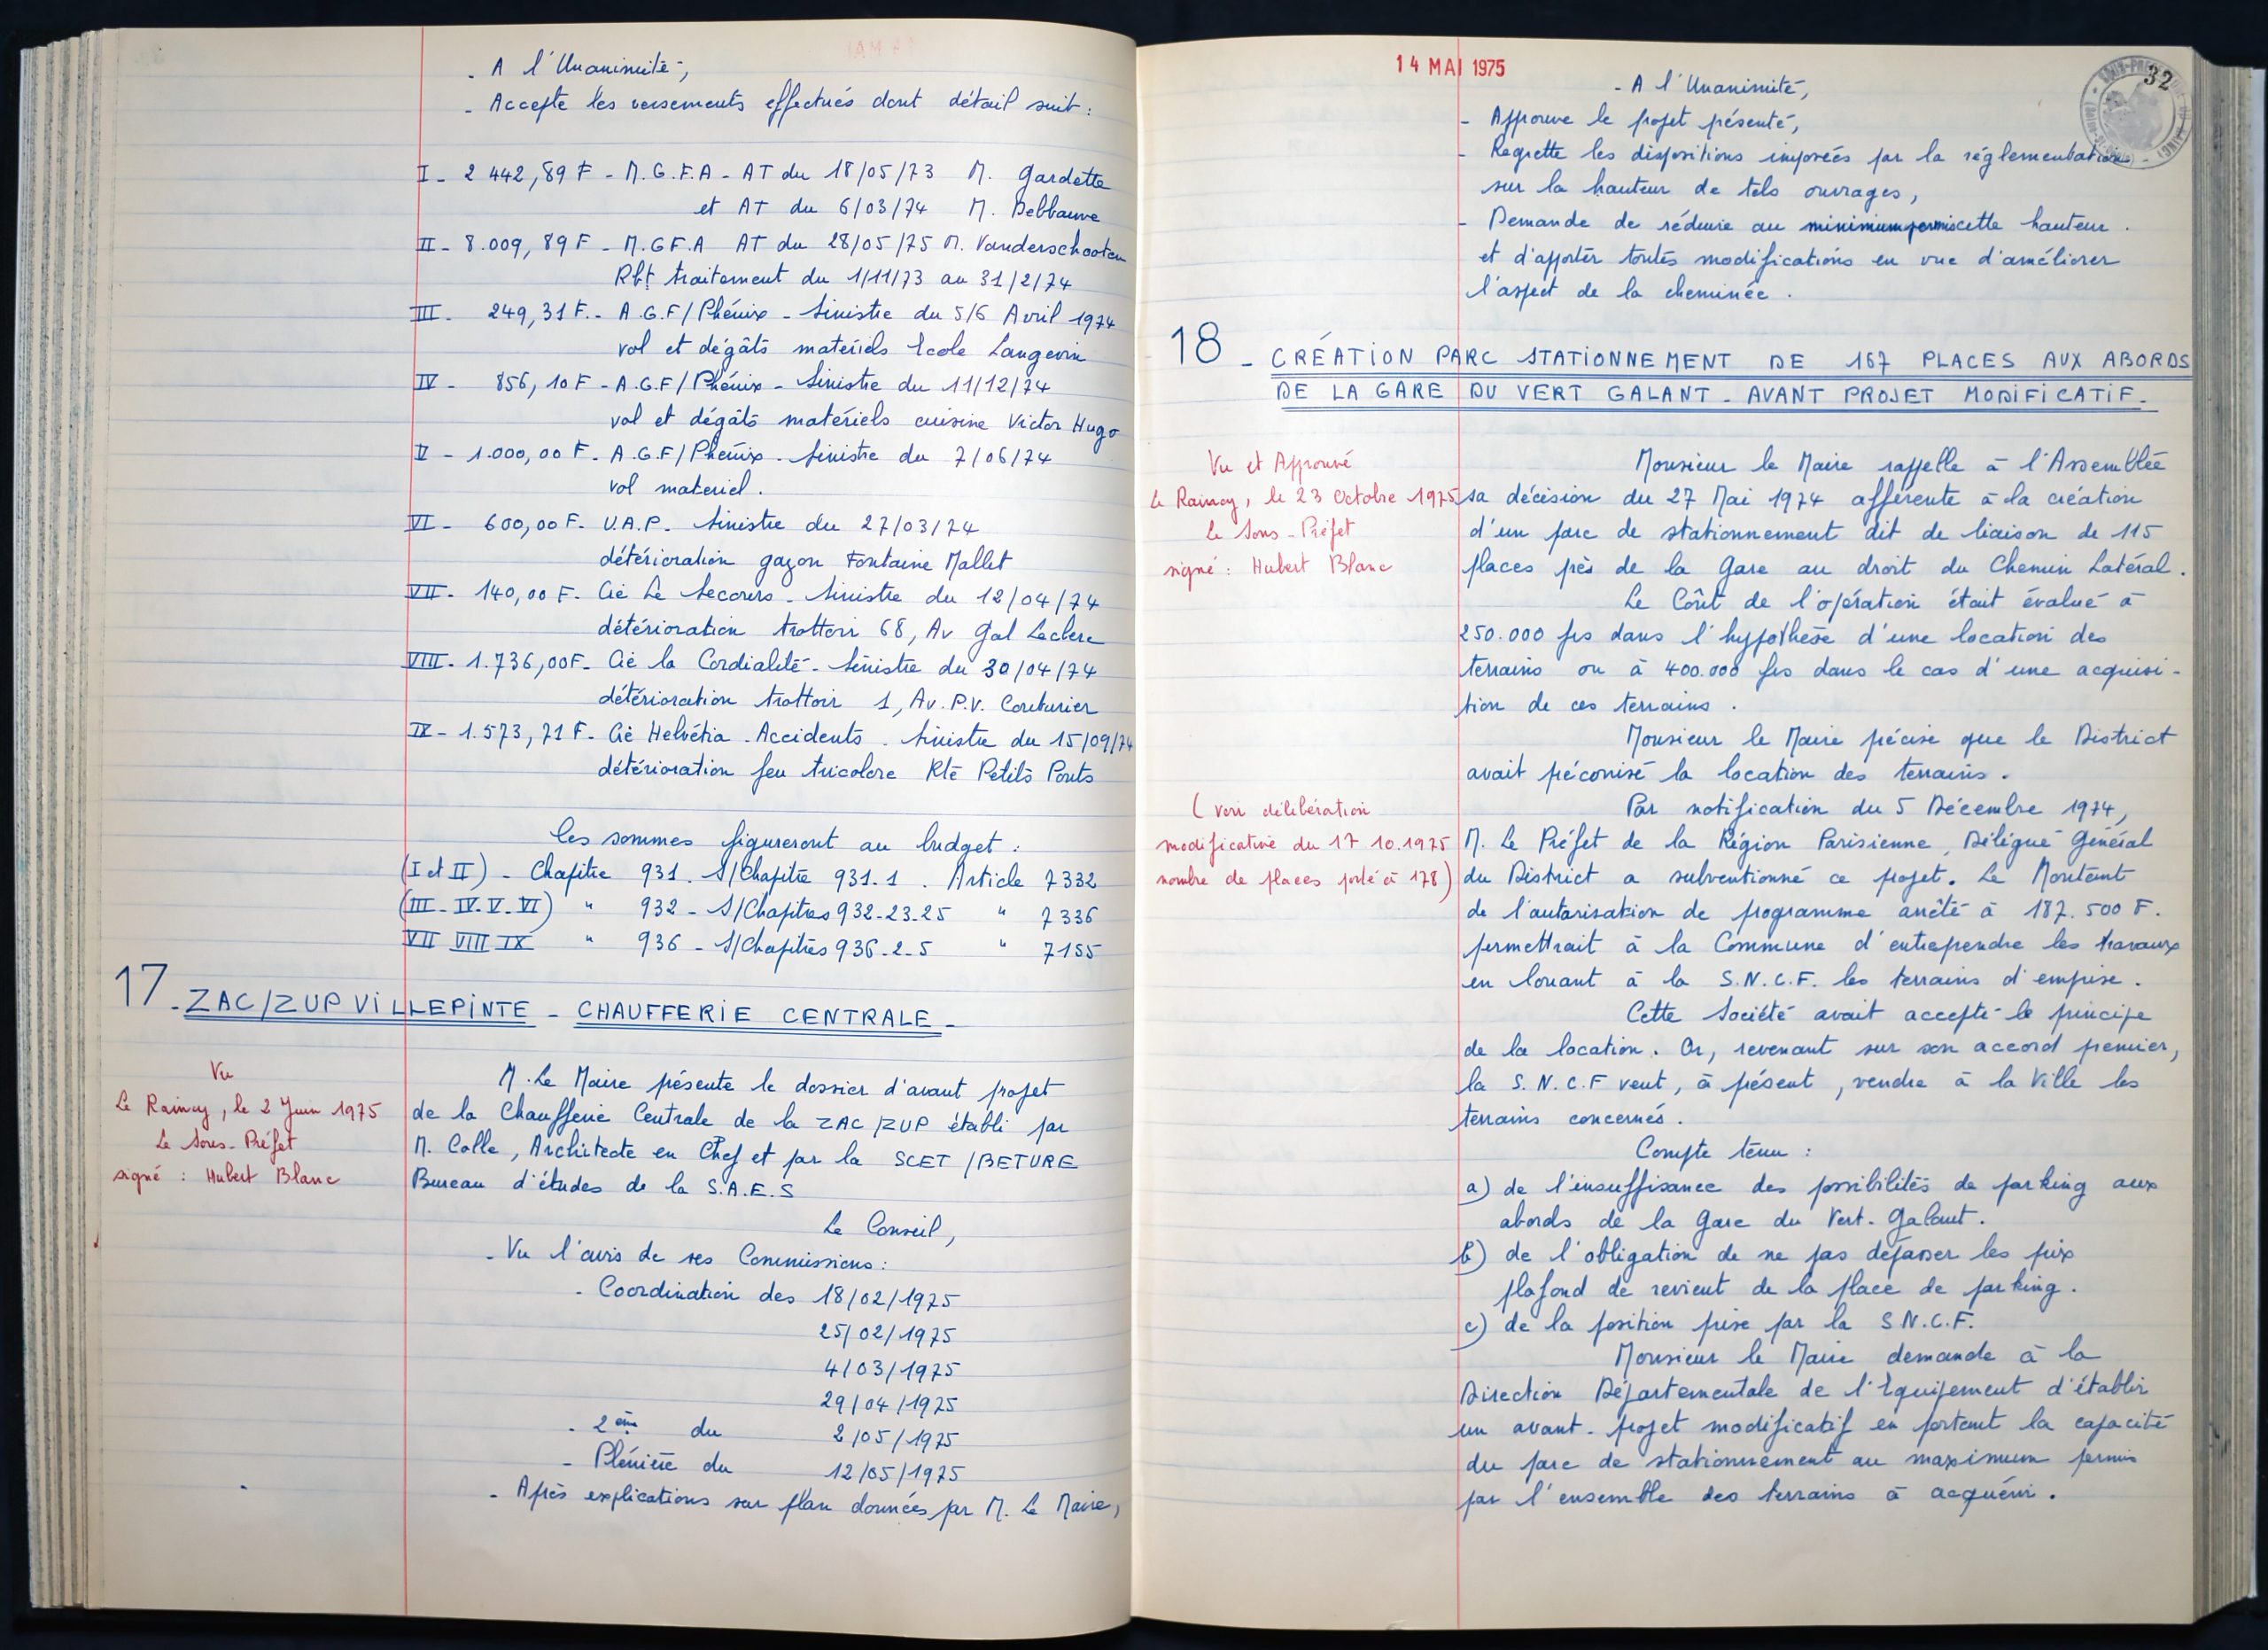 - A l'Unanimité,
- Accepte les versements effectués dont détail suit :
I - 2 442,89 F - M.G.F.A - AT du 18/05/73 M. Gardette
et AT du 6/03/74 M. Debbauve
II - 8.009,89 F - M.GF.A AT du 28/05/75 M. Vanderschooten
Rbt traitement du 1/11/73 au 31/2/74
III - 249,31 F. - A.G.F/Phénix - Sinistre du 5/6 Avril 1974
vol et dégâts matériels Ecole Langevin
IV - 856,10 F - A.G.F/Phénix - Sinistre du 11/12/74
vol et dégâts matériels cuisine Victor Hugo
V - 1.000,00 F. A.G.F/Phénix - Sinistre du 7/06/74
vol materiel.
VI - 600,00 F. U.A.P. Sinistre du 27/03/74
détérioration gazon Fontaine Mallet
VII - 140,00 F. Cie Le Secours - Sinistre du 12/04/74
détérioration trottoir 68, Av Gal Leclerc
VIII - 1.736,00F - Cie la Cordialité - Sinistre du 30/04/74
détérioration trottoir 1, Av. P.V. Couturier
IX - 1.573,71 F - Cie Helvétia - Accidents - Sinistre du 15/09/74
détérioration feu tricolore Rte Petits Ponts
Les sommes figureront au budget :
(I et II) - Chapitre 931. S/Chapitre 931.1 . Article 7332
(III - IV. V. VI) " 932 - S/Chapitres 932-23-25 " 7336
VII VIII IX " 936 - S/Chapitres 936-2-5 " 7155
17 - ZAC/ZUP VILLEPINTE - CHAUFFERIE CENTRALE -
Vu
Le Raincy, le 2 Juin 1975
Le Sous-Préfet
signé : Hubert Blanc
M. Le Maire présente le dossier d'avant projet
de la Chaufferie Centrale de la ZAC/ZUP établi par
M. Colle, Architecte en Chef et par la SCET/BETURE
Bureau d'études de la S.A.E.S
Le Conseil,
- Vu l'avis de ses Commissions :
- Coordination des 18/02/1975
25/02/1975
4/03/1975
29/04/1975
- 2ème du 2/05/1975
- Plénière du 12/05/1975
- Après explications sur plan données par M. Le Maire,
14 MAI 1975
32
- A l'Unanimité,
- Approuve le projet présenté,
- Regrette les dispositions imposées par la réglementation -
sur la hauteur de tels ouvrages,
- Demande de réduire au minimum permis cette hauteur.
et d'apporter toutes modifications en vue d'améliorer
l'aspect de la cheminée.
18 - CRÉATION PARC STATIONNEMENT DE 167 PLACES AUX ABORDS
DE LA GARE DU VERT GALANT - AVANT PROJET MODIFICATIF -
Vu et Approuvé
Le Raincy, le 23 Octobre 1975
Le Sous-Préfet
signé : Hubert Blanc
Monsieur le Maire rappelle à l'Assemblée
sa décision du 27 Mai 1974 afférente à la création
d'un parc de stationnement dit de liaison de 115
places près de la Gare au droit du Chemin Latéral.
Le Coût de l'opération était évalué à
250.000 frs dans l'hypothèse d'une location des
terrains ou à 400.000 frs dans le cas d'une acquisi-
tion de ces terrains.
Monsieur le Maire précise que le District
avait préconisé la location des terrains.
(voir délibération
modificative du 17 10.1975
nombre de places porté à 178)
Par notification du 5 Décembre 1974,
M. Le Préfet de la Région Parisienne, Délégué Général
du District a subventionné ce projet. Le Montant
de l'autorisation de programme arrêté à 187.500 F.
permettrait à la Commune d'entreprendre les travaux
en louant à la S.N.C.F. les terrains d'emprise.
Cette Société avait accepté le principe
de la location. Or, revenant sur son accord premier,
la S.N.C.F veut, à présent, vendre à la Ville les
terrains concernés.
Compte tenu :
a) de l'insuffisance des possibilités de parking aux
abords de la Gare du Vert-Galant.
b) de l'obligation de ne pas dépasser les prix
plafond de revient de la place de parking.
c) de la position prise par la S.N.C.F.
Monsieur le Maire demande à la
Direction Départementale de l'Equipement d'établir
un avant-projet modificatif en portant la capacité
du parc de stationnement au maximum permis
par l'ensemble des terrains à acquérir.